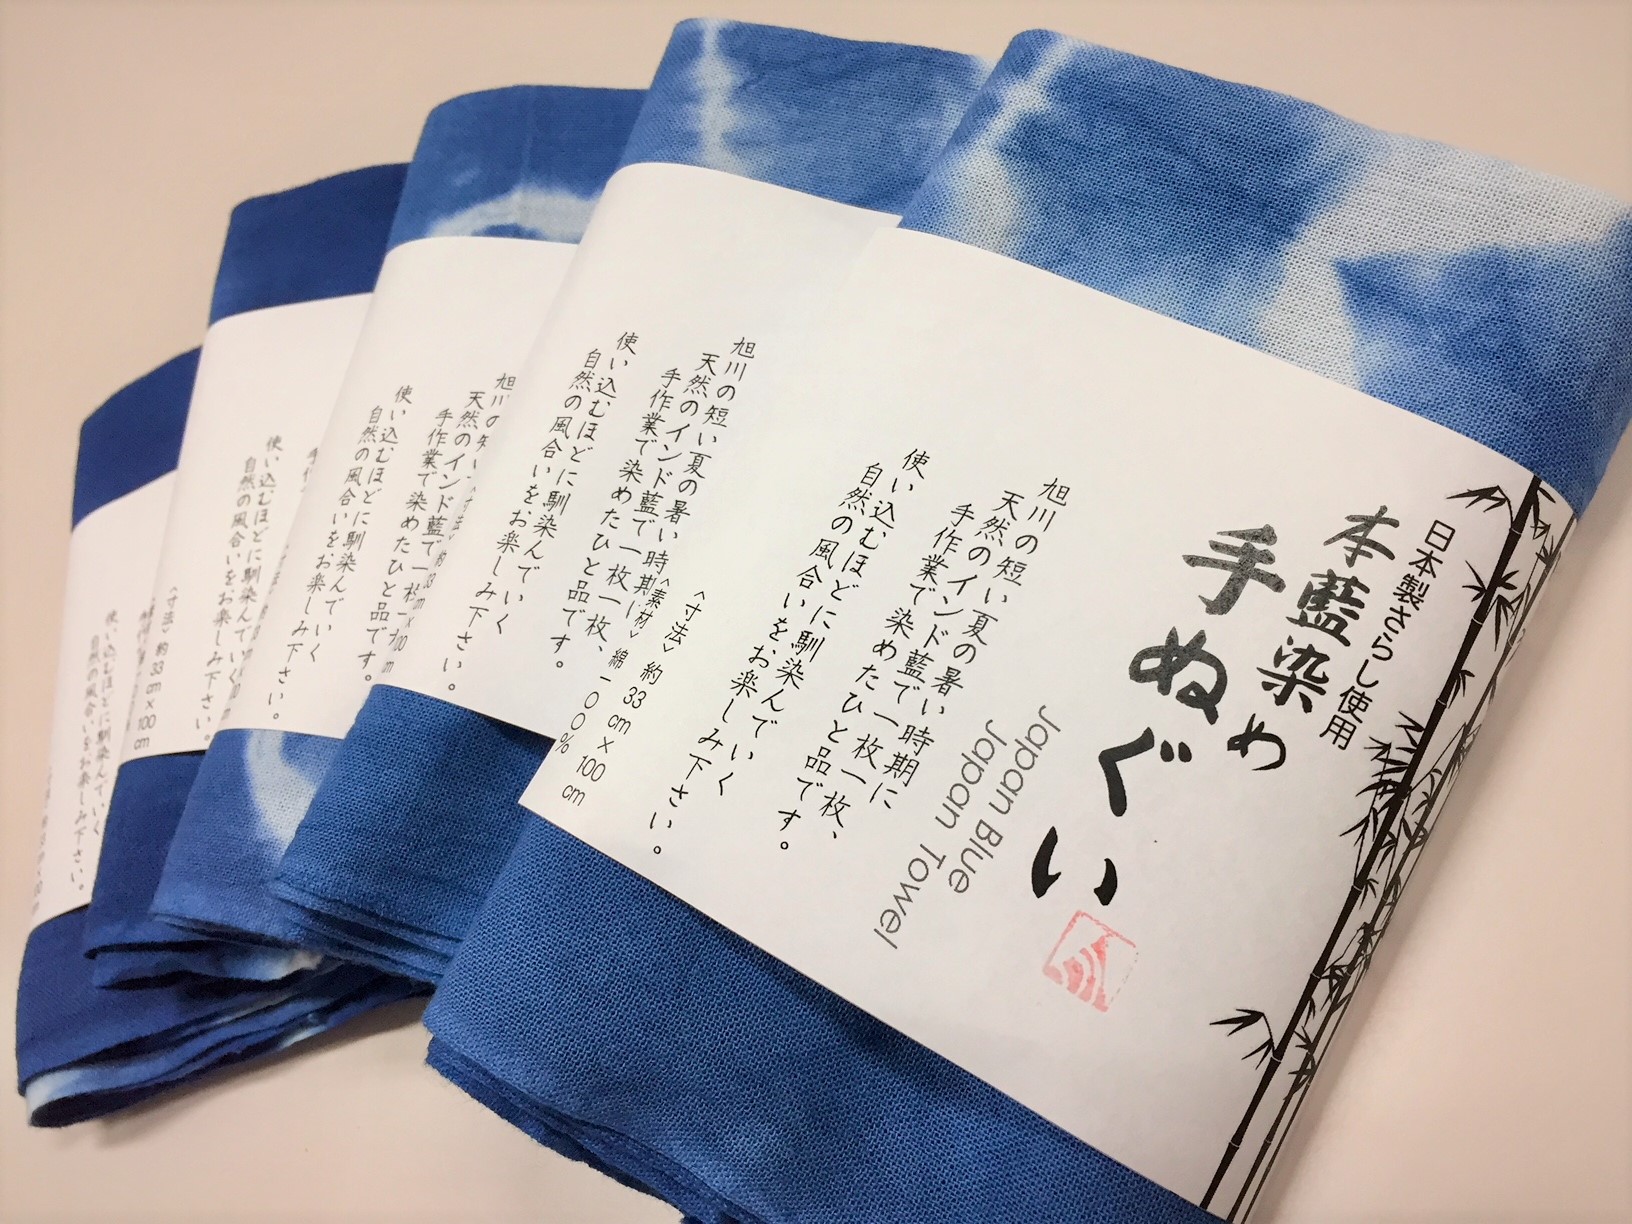 日本製さらし使用
本藍染め
手ぬぐい
Japan Blue
Japan Towel
旭川の短い夏の暑い時期に
天然のインド藍で一枚一枚、
手作業で染めたひと品です。
使い込むほどに馴染んでいく
自然の風合いをお楽しみ下さい。
旭川の短い夏の暑い時期に
天然のインド藍で一枚一枚、
手作業で染めたひと品です。
使い込むほどに馴染んでいく
自然の風合いをお楽しみ下さい。
<素材> 綿一〇〇%
<寸法> 約33cm×100cm
旭川の短い
天然のインド藍で一
手作業で染めたひと品です。
使い込むほどに馴染んでいく
自然の風合いをお楽しみ下さい。
使い込むほどに馴染んでいく
自然の風合いをお楽しみ下さい。
<寸法> 約33cm×100cm
使い込むほどに馴染んでいく
自然の風合いをお楽しみ下さい。